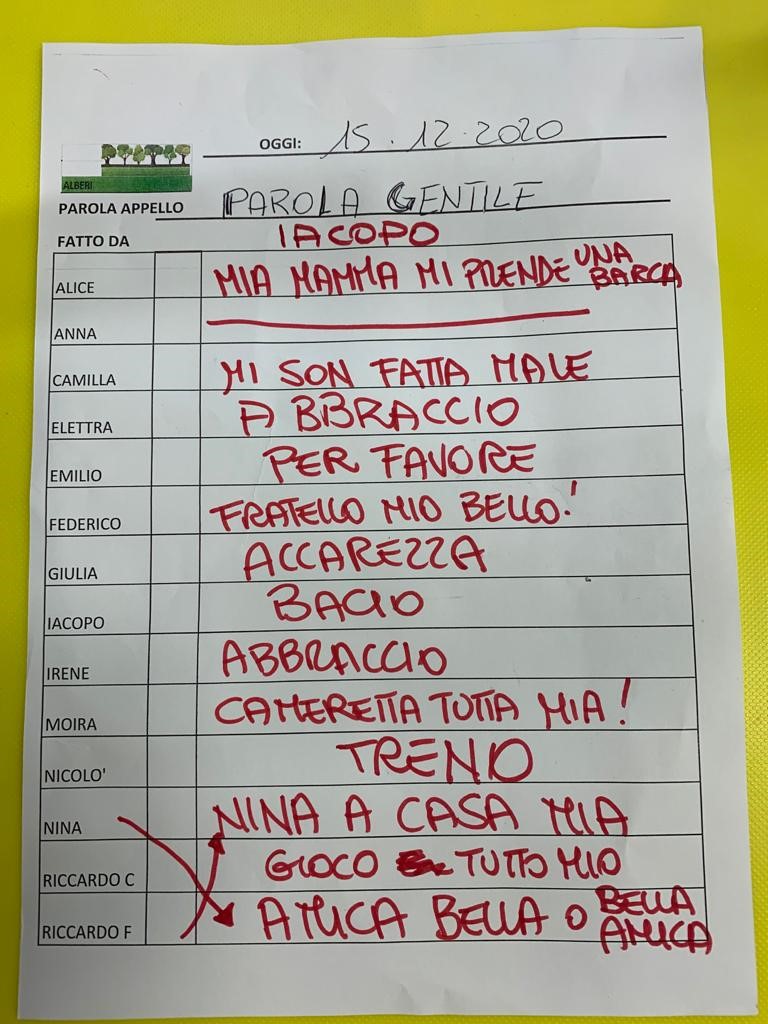 OGGI: 15.12.2020
ALBERI
PAROLA APPELLO PAROLA GENTILE
FATTO DA IACOPO
ALICE MIA MAMMA MI PRENDE UNA BARCA
ANNA
CAMILLA MI SON FATTA MALE
ELETTRA ABBRACCIO
EMILIO PER FAVORE
FEDERICO FRATELLO MIO BELLO!
GIULIA ACCAREZZA
IACOPO BACIO
IRENE ABBRACCIO
MOIRA CAMERETTA TUTTA MIA!
NICOLO' TRENO
NINA NINA A CASA MIA
RICCARDO C GIOCO TUTTO MIO
RICCARDO F AMICA BELLA O BELLA AMICA